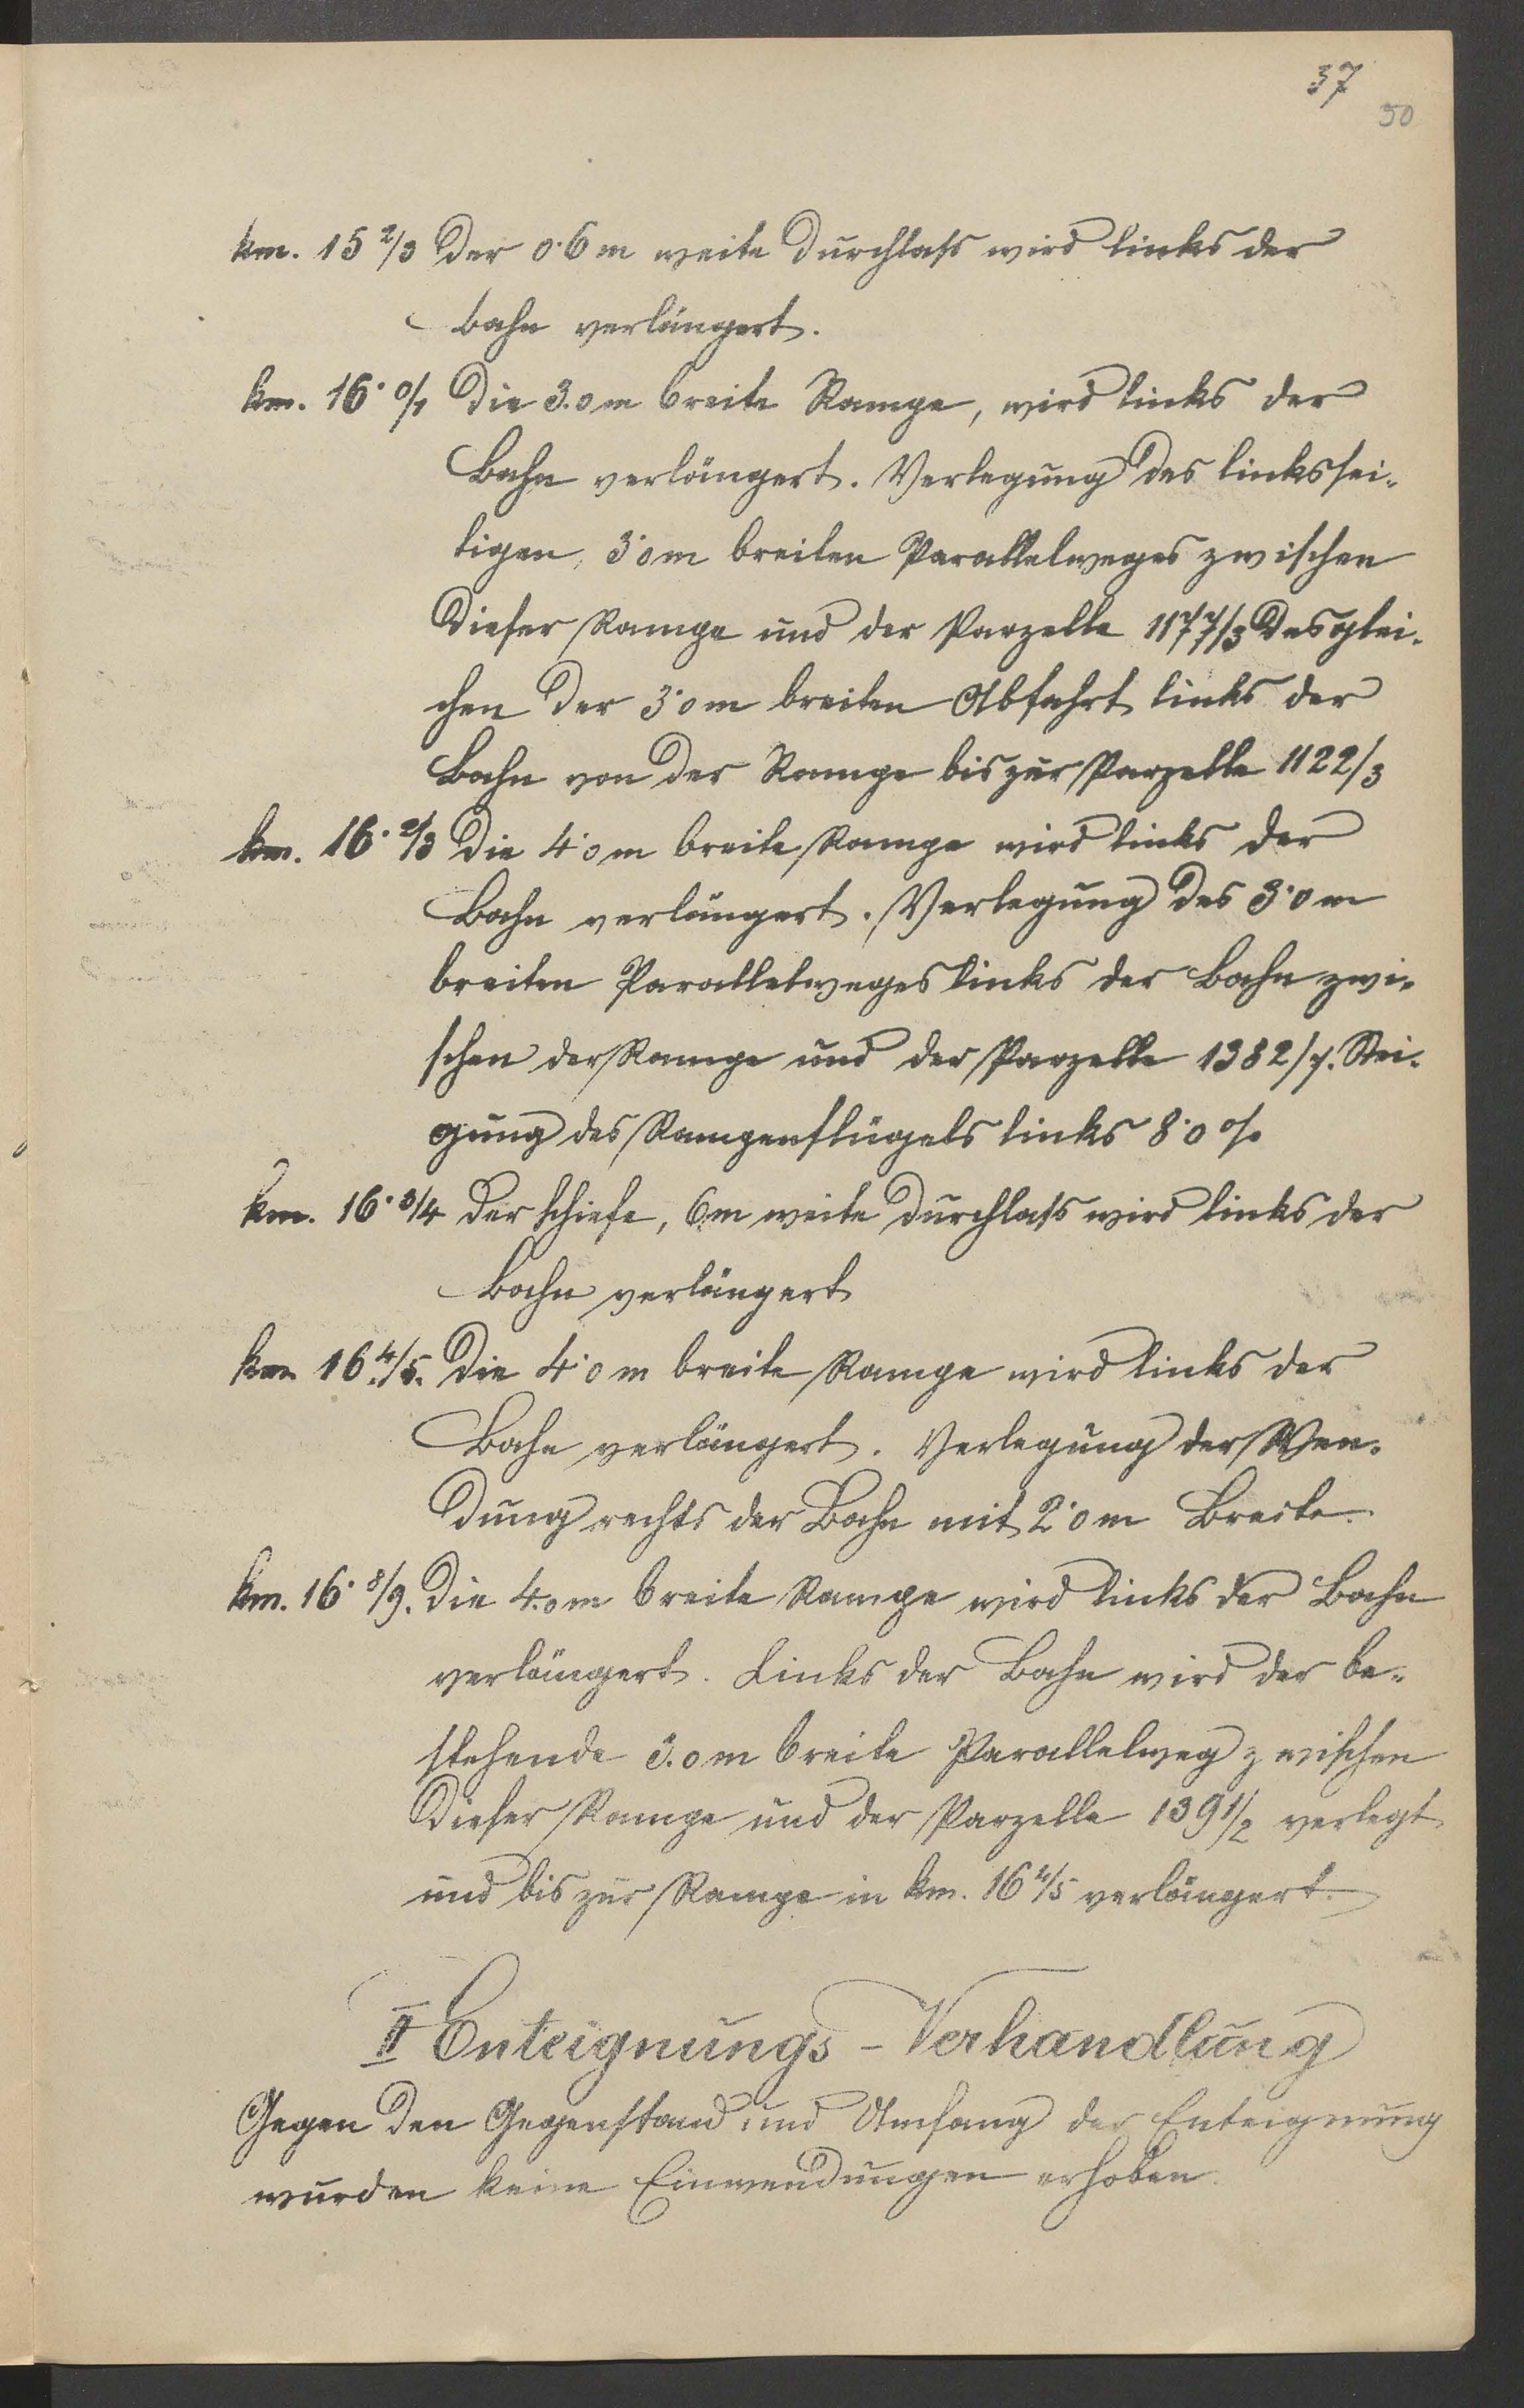 37
50
km. 15 2/3 Der 0·6 m weite Durchlass wird links der
Bahn verlängert.
km. 16· 0/1 Die 3.0 m breite Rampe, wird links der
Bahn verlängert. Verlegung des linkssei-
tigen, 3·0 m breiten Parallelweges zwischen
dieser Rampe und der Parzelle 1177/3 desglei-
chen der 3·0 m breiten Abfahrt links der
Bahn von der Rampe bis zur Parzelle 1122/3
km. 16· 2/3 Die 4·0 m breite Rampe wird links der
Bahn verlängert. Verlegung des 3·0 m
breiten Parallelweges links der Bahn zwi-
schen der Rampe und der Parzelle 1382/7. Stei-
gung des Rampenflügels links 8·0 %
km. 16· 3/4 Der schiefe, 6 m weite Durchlass wird links der
Bahn verlängert
km 16 4/5. Die 4·0 m breite Rampe wird links der
Bahn verlängert. Verlegung der Wen-
dung rechts der Bahn mit 2·0 m Breite.
km. 16· 8/9. Die 4.0 m breite Rampe wird links der Bahn
verlängert. Links der Bahn wird der be-
stehende 3.0 m breite Parallelweg zwischen
dieser Rampe und der Parzelle 1391/2 verlegt
und bis zur Rampe in km. 16 4/5 verlängert.
II Enteignungs-Verhandlung
Gegen den Gegenstand und Umfang der Enteignung
wurden keine Einwendungen erhoben.